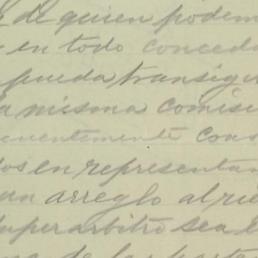 de quien podem
en todo conced
pueda transigi
a misma comisi
cuentemente cons
os en representa
un arreglo al rie
uperarbitro sea e